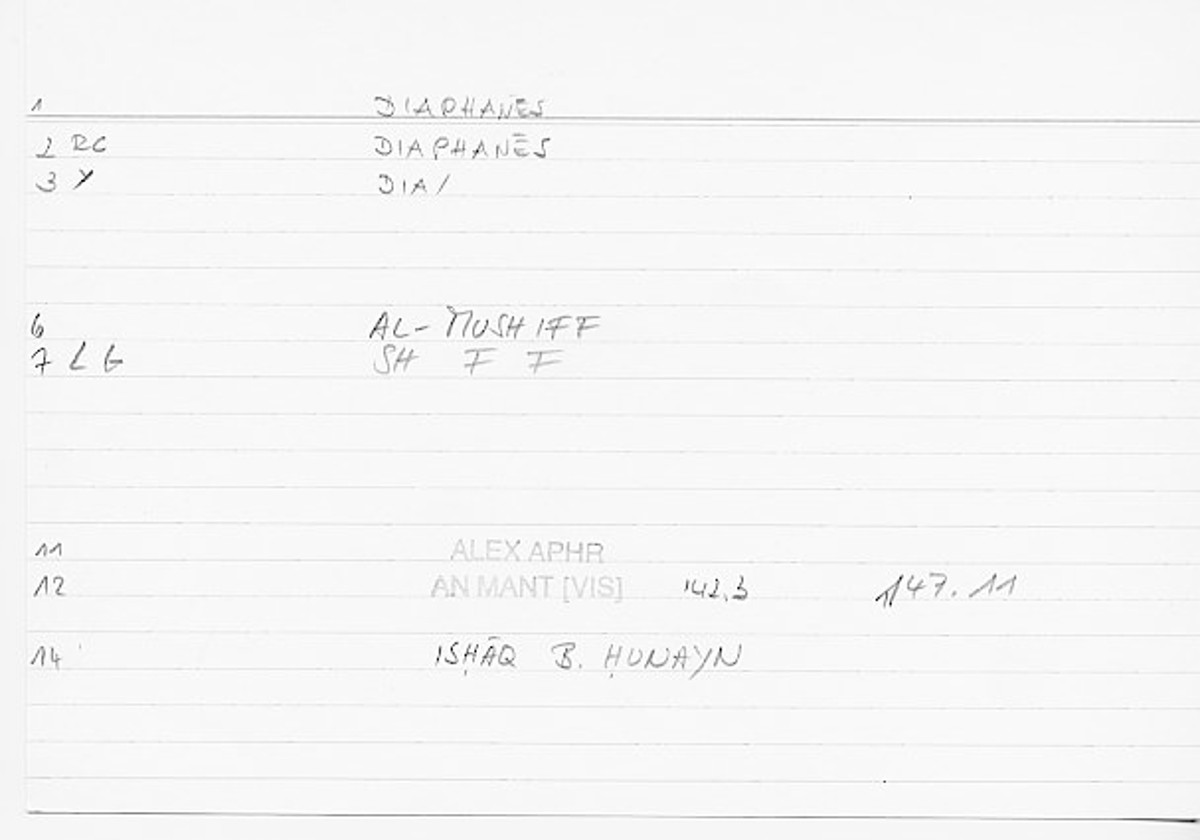 1 DIAPHANĒS
2 RC DIAPHANĒS
3 Y DIA/
6 AL-MUSHIFF
7 L G SH F F
11 ALEX APHR
12 AN MANT [VIS] 142.3 147.11
14 ISḤĀQ B. ḤUNAYN